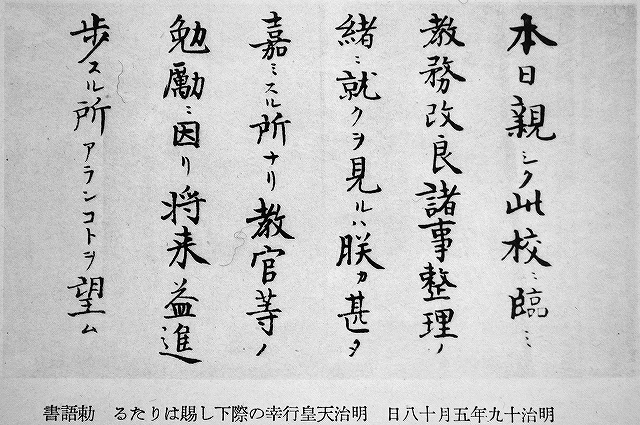 本日親シク此校ニ臨ミ
教務改良諸事整理ノ
緒ニ就クヲ見ルハ朕カ甚タ
嘉ミスル所ナリ教官等ノ
勉励ニ因リ将来益進
歩スル所アランコトヲ望ム
明治十九年五月十八日　明治天皇行幸の際下し賜はりたる　勅語書